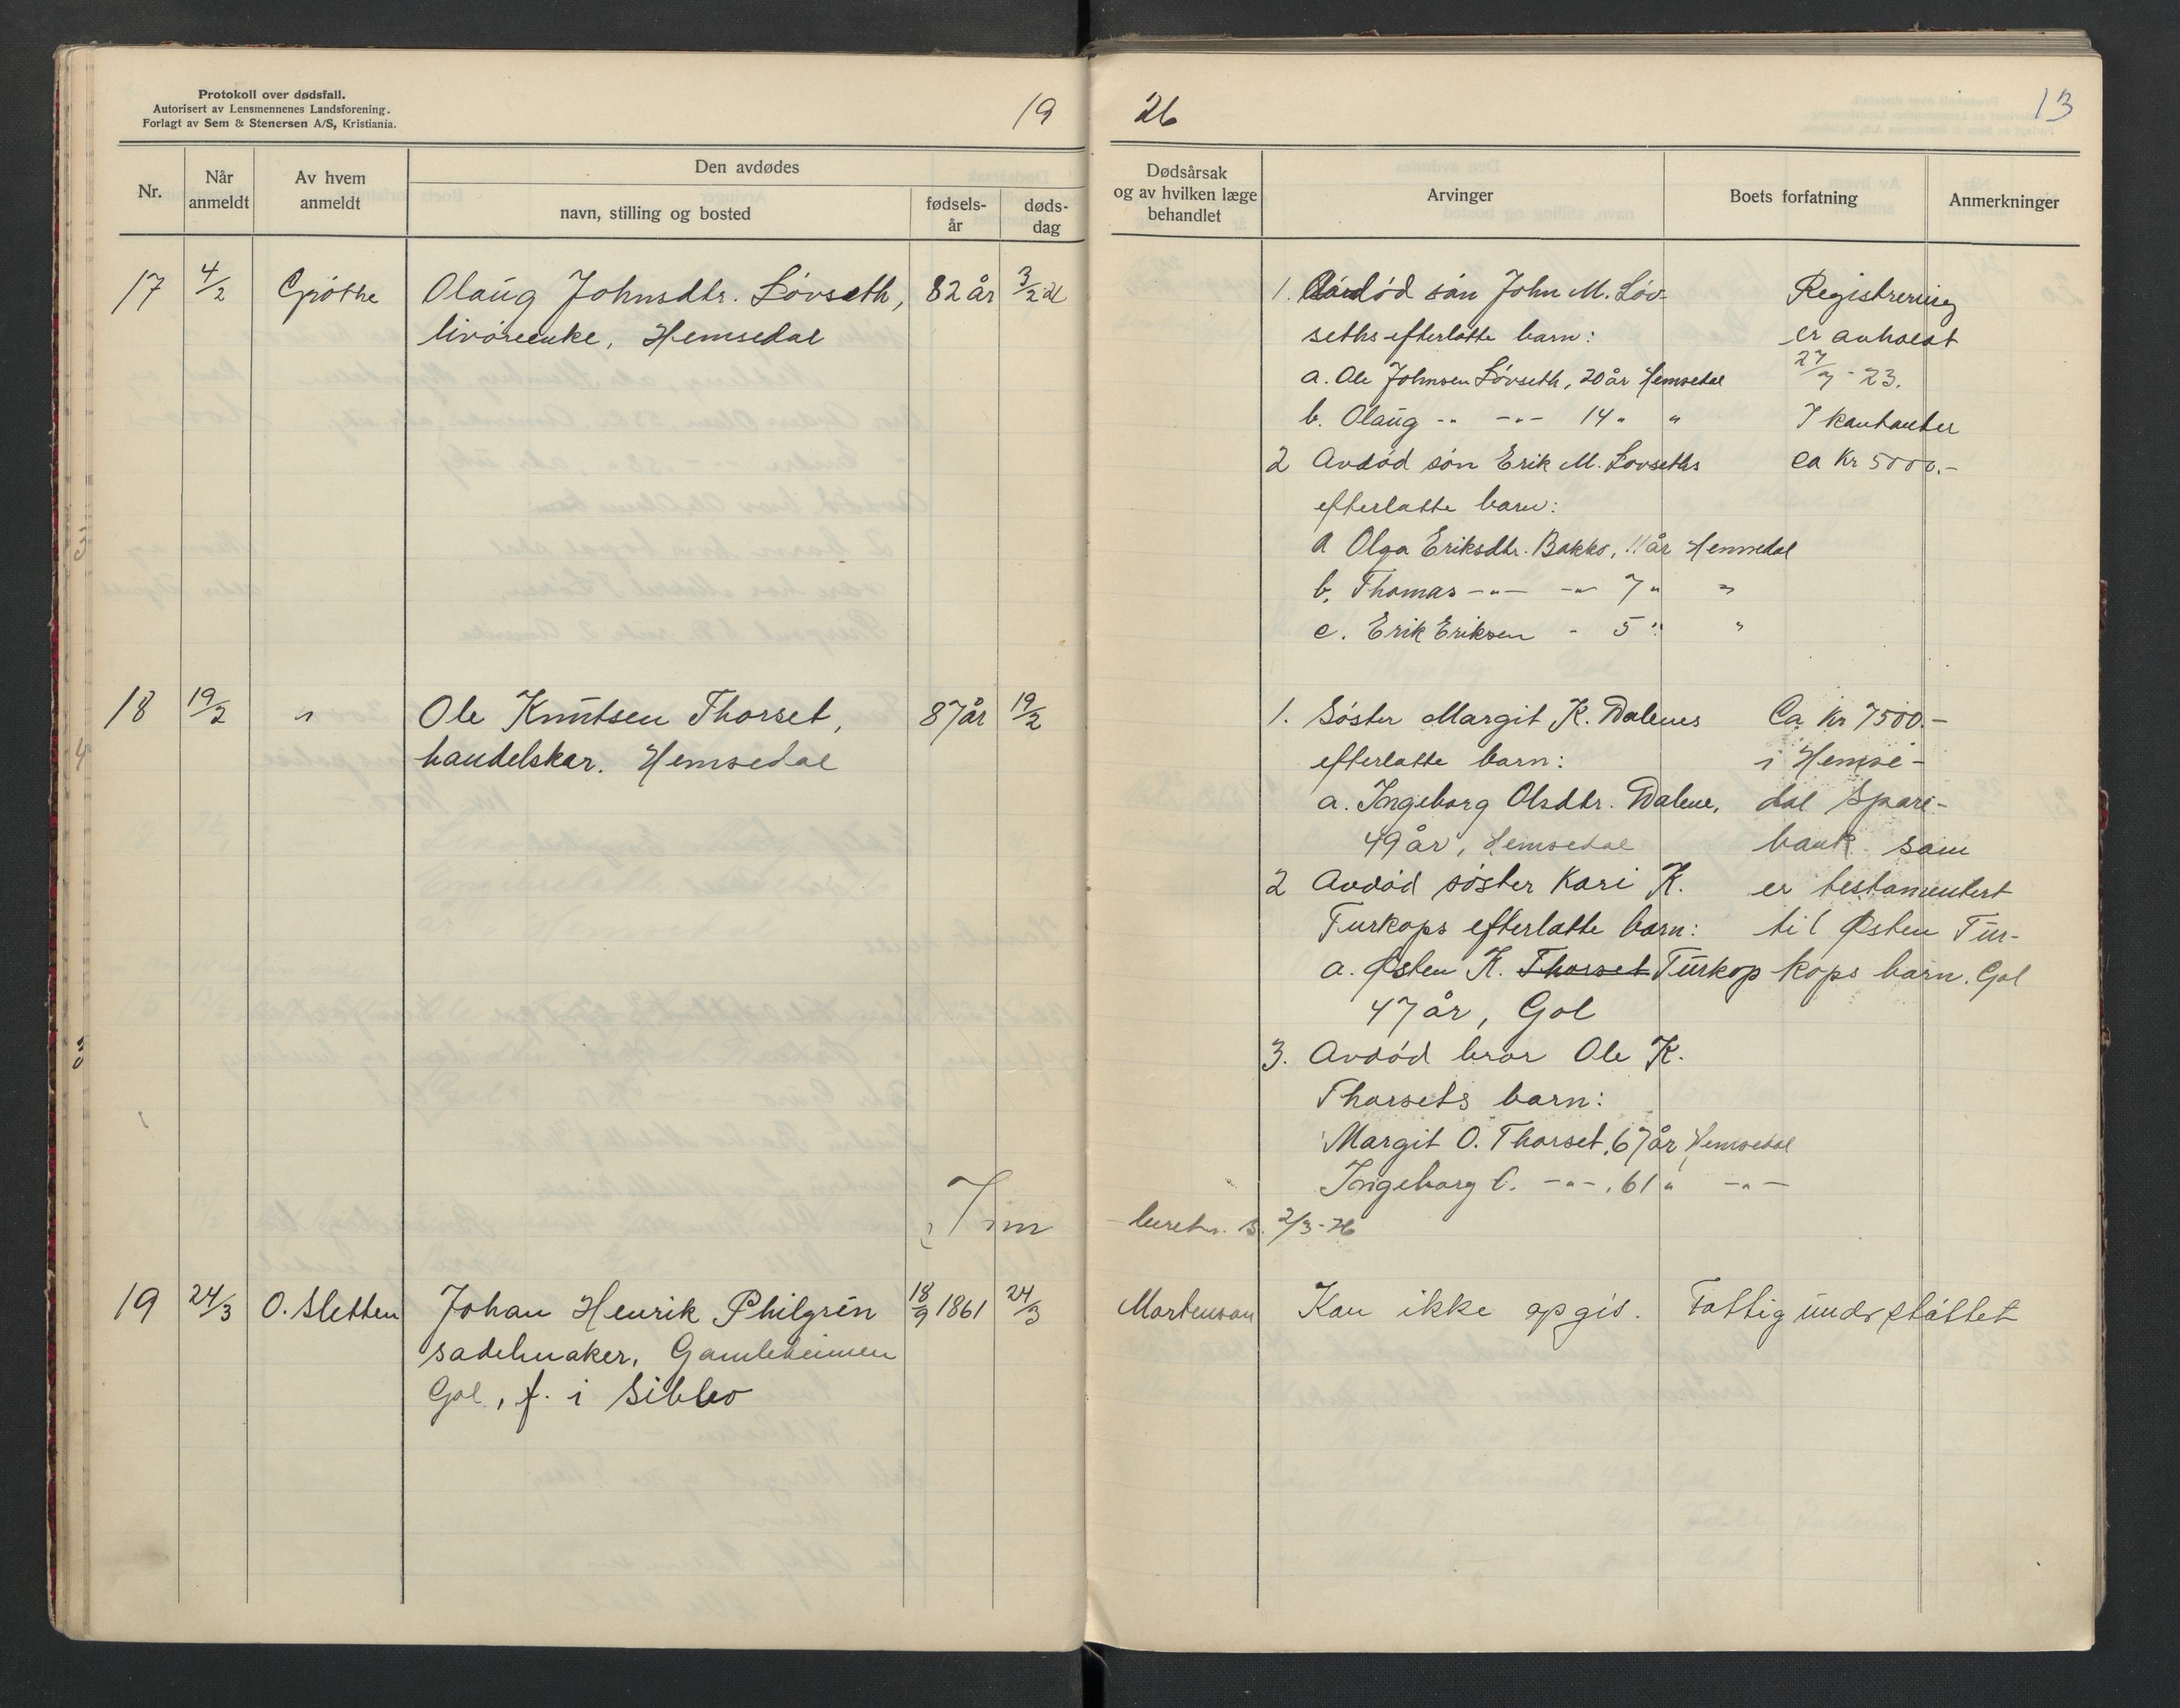 Protokoll over dødsfall.
Autorisert av Lensmennenes Landsforening.
Forlagt av Sem & Stenersen A/S, Kristiania.
19
Nr.
Når anmeldt
Av hvem anmeldt
Den avdødes
navn, stilling og bosted
fødsels-år
døds-dag
17 4/2 Grøthe Olaug Johnsdtr. Løvseth, 82 år 3/2
livøreenke, Hemsedal
18 19/2 " Ole Knutsen Thorset, 87 år 19/2
handelskar. Hemsedal
19 24/3 O. Sletten Johan Henrik Philgrén 18/9 1861 24/3
sadelmaker, Gamleheimen
Gol, f. i Sibbo
26
13
Dødsårsak
og av hvilken læge
behandlet
Arvinger
Boets forfatning
Anmerkninger
1. Avdød søn John M. Løv- Registrering
seths efterlatte barn: er avholdt
a. Ole Johnsen Løvseth, 20 år Hemsedal 23.
b. Olaug -"- -"- 14 " " I kontanter
2 Avdød søn Erik M. Løvseths ca Kr 5000.-
efterlatte barn:
a Olga Eriksdtr. Bakko, 11 år Hemsedal
b. Thomas -"- -"- 7 " "
c. Erik Eriksen - 5 " "
1. Søster Margit K. Dalenes Ca Kr 7500.-
efterlatte barn: i Hemse-
a. Ingeborg Olsdtr. Dalene, dal Spare-
49 år, Hemsedal bank som
2 Avdød søster Kari K. er testamentert
Turkops efterlatte barn: til Østen Tur-
a. Østen K. Thorset Turkop kops barn. Gol
47 år, Gol
3. Avdød bror Ole K.
Thorsets barn:
Margit O. Thorset, 67 år Hemsedal
Ingeborg O. -"-, 61 " -"-
2/3-26
Mortenson Kan ikke opgis. Fattigunderstøttet